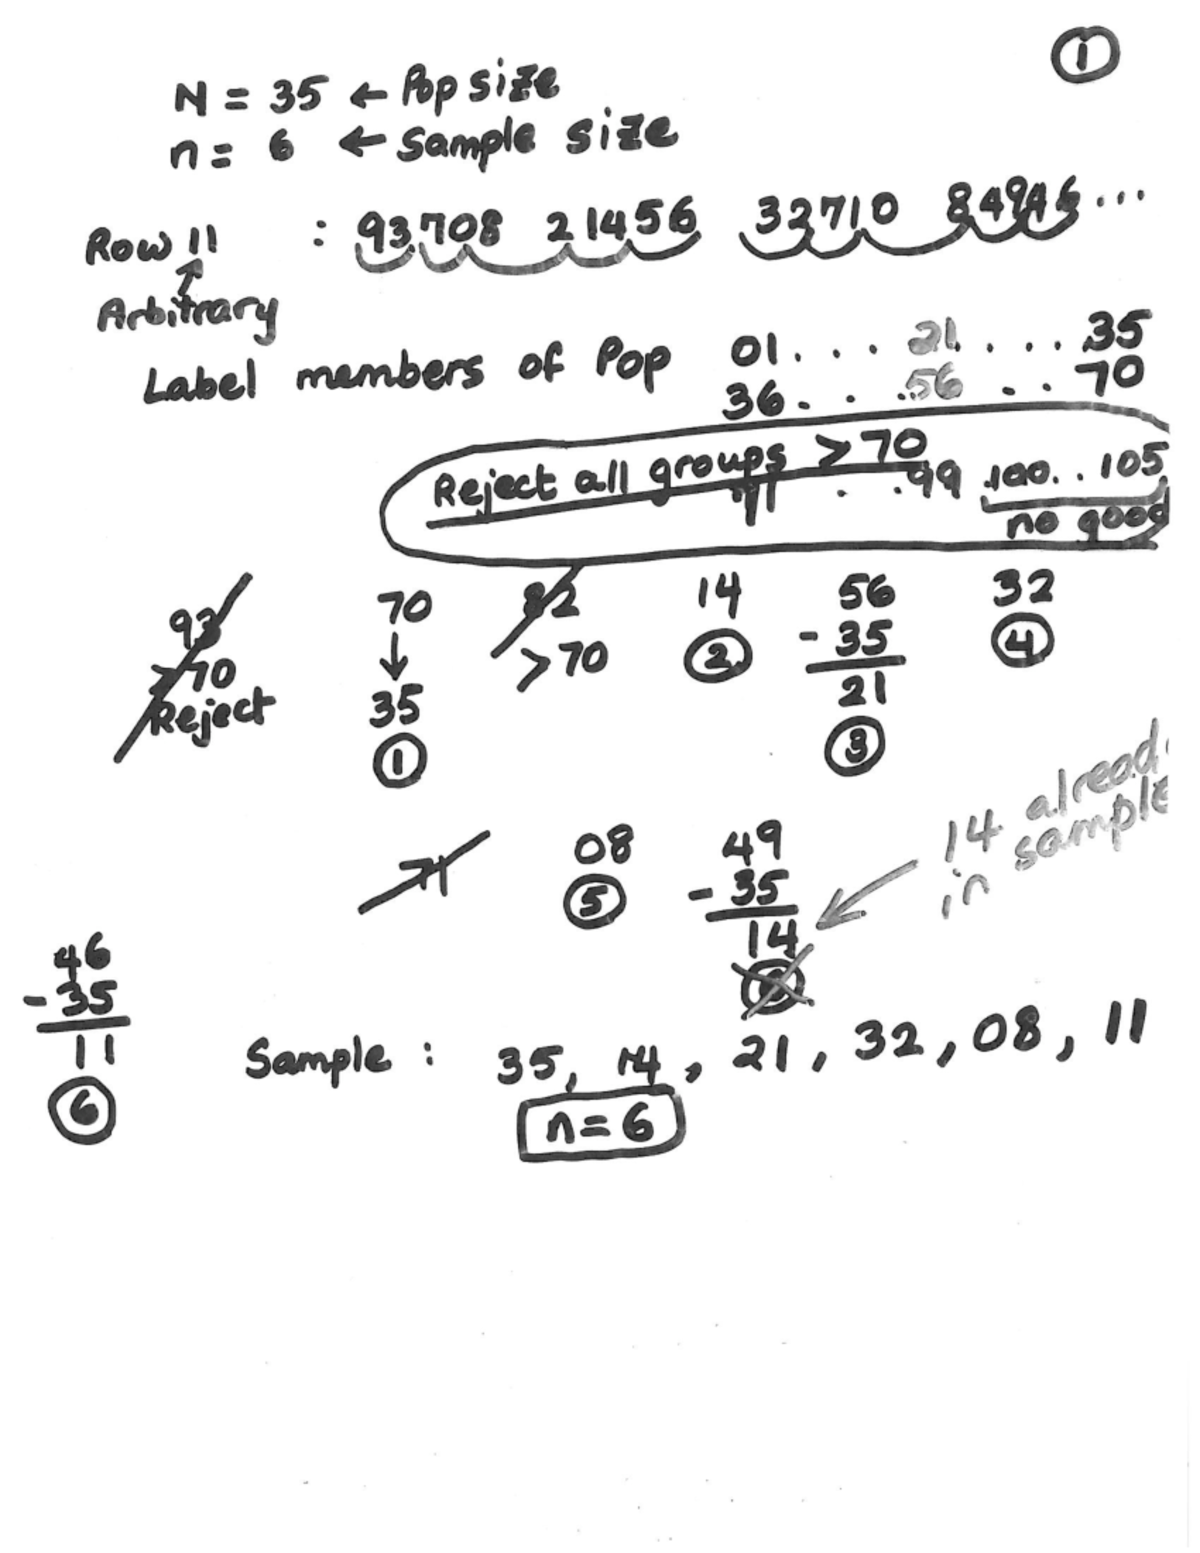 ①
N = 35 ← Pop size
n = 6 ← Sample size
Row 11 : 93708 21456 32710 84946...
Arbitrary
Label members of Pop 01 . . . 21 . . . . 35
36 . . . 56 . . 70
Reject all groups > 70
71 . . 99 100 . . 105
no good
93 70 82 14 56 32
>70 ↓ >70 ② - 35 ④
Reject 35 21
① ③
14 already
in sample
71 08 49
⑤ - 35
14
46
- 35
11
⑥
Sample : 35, 14, 21, 32, 08, 11
n = 6